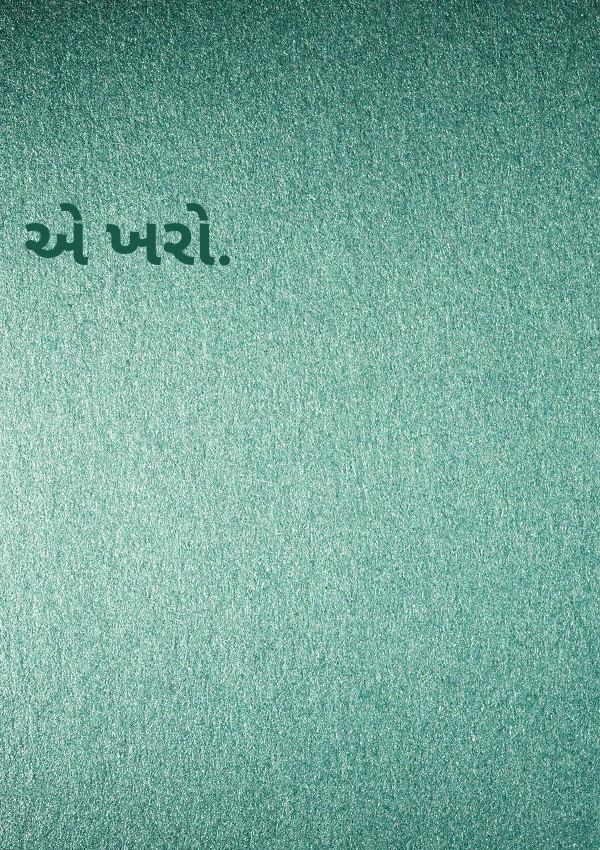 એ ખરો.